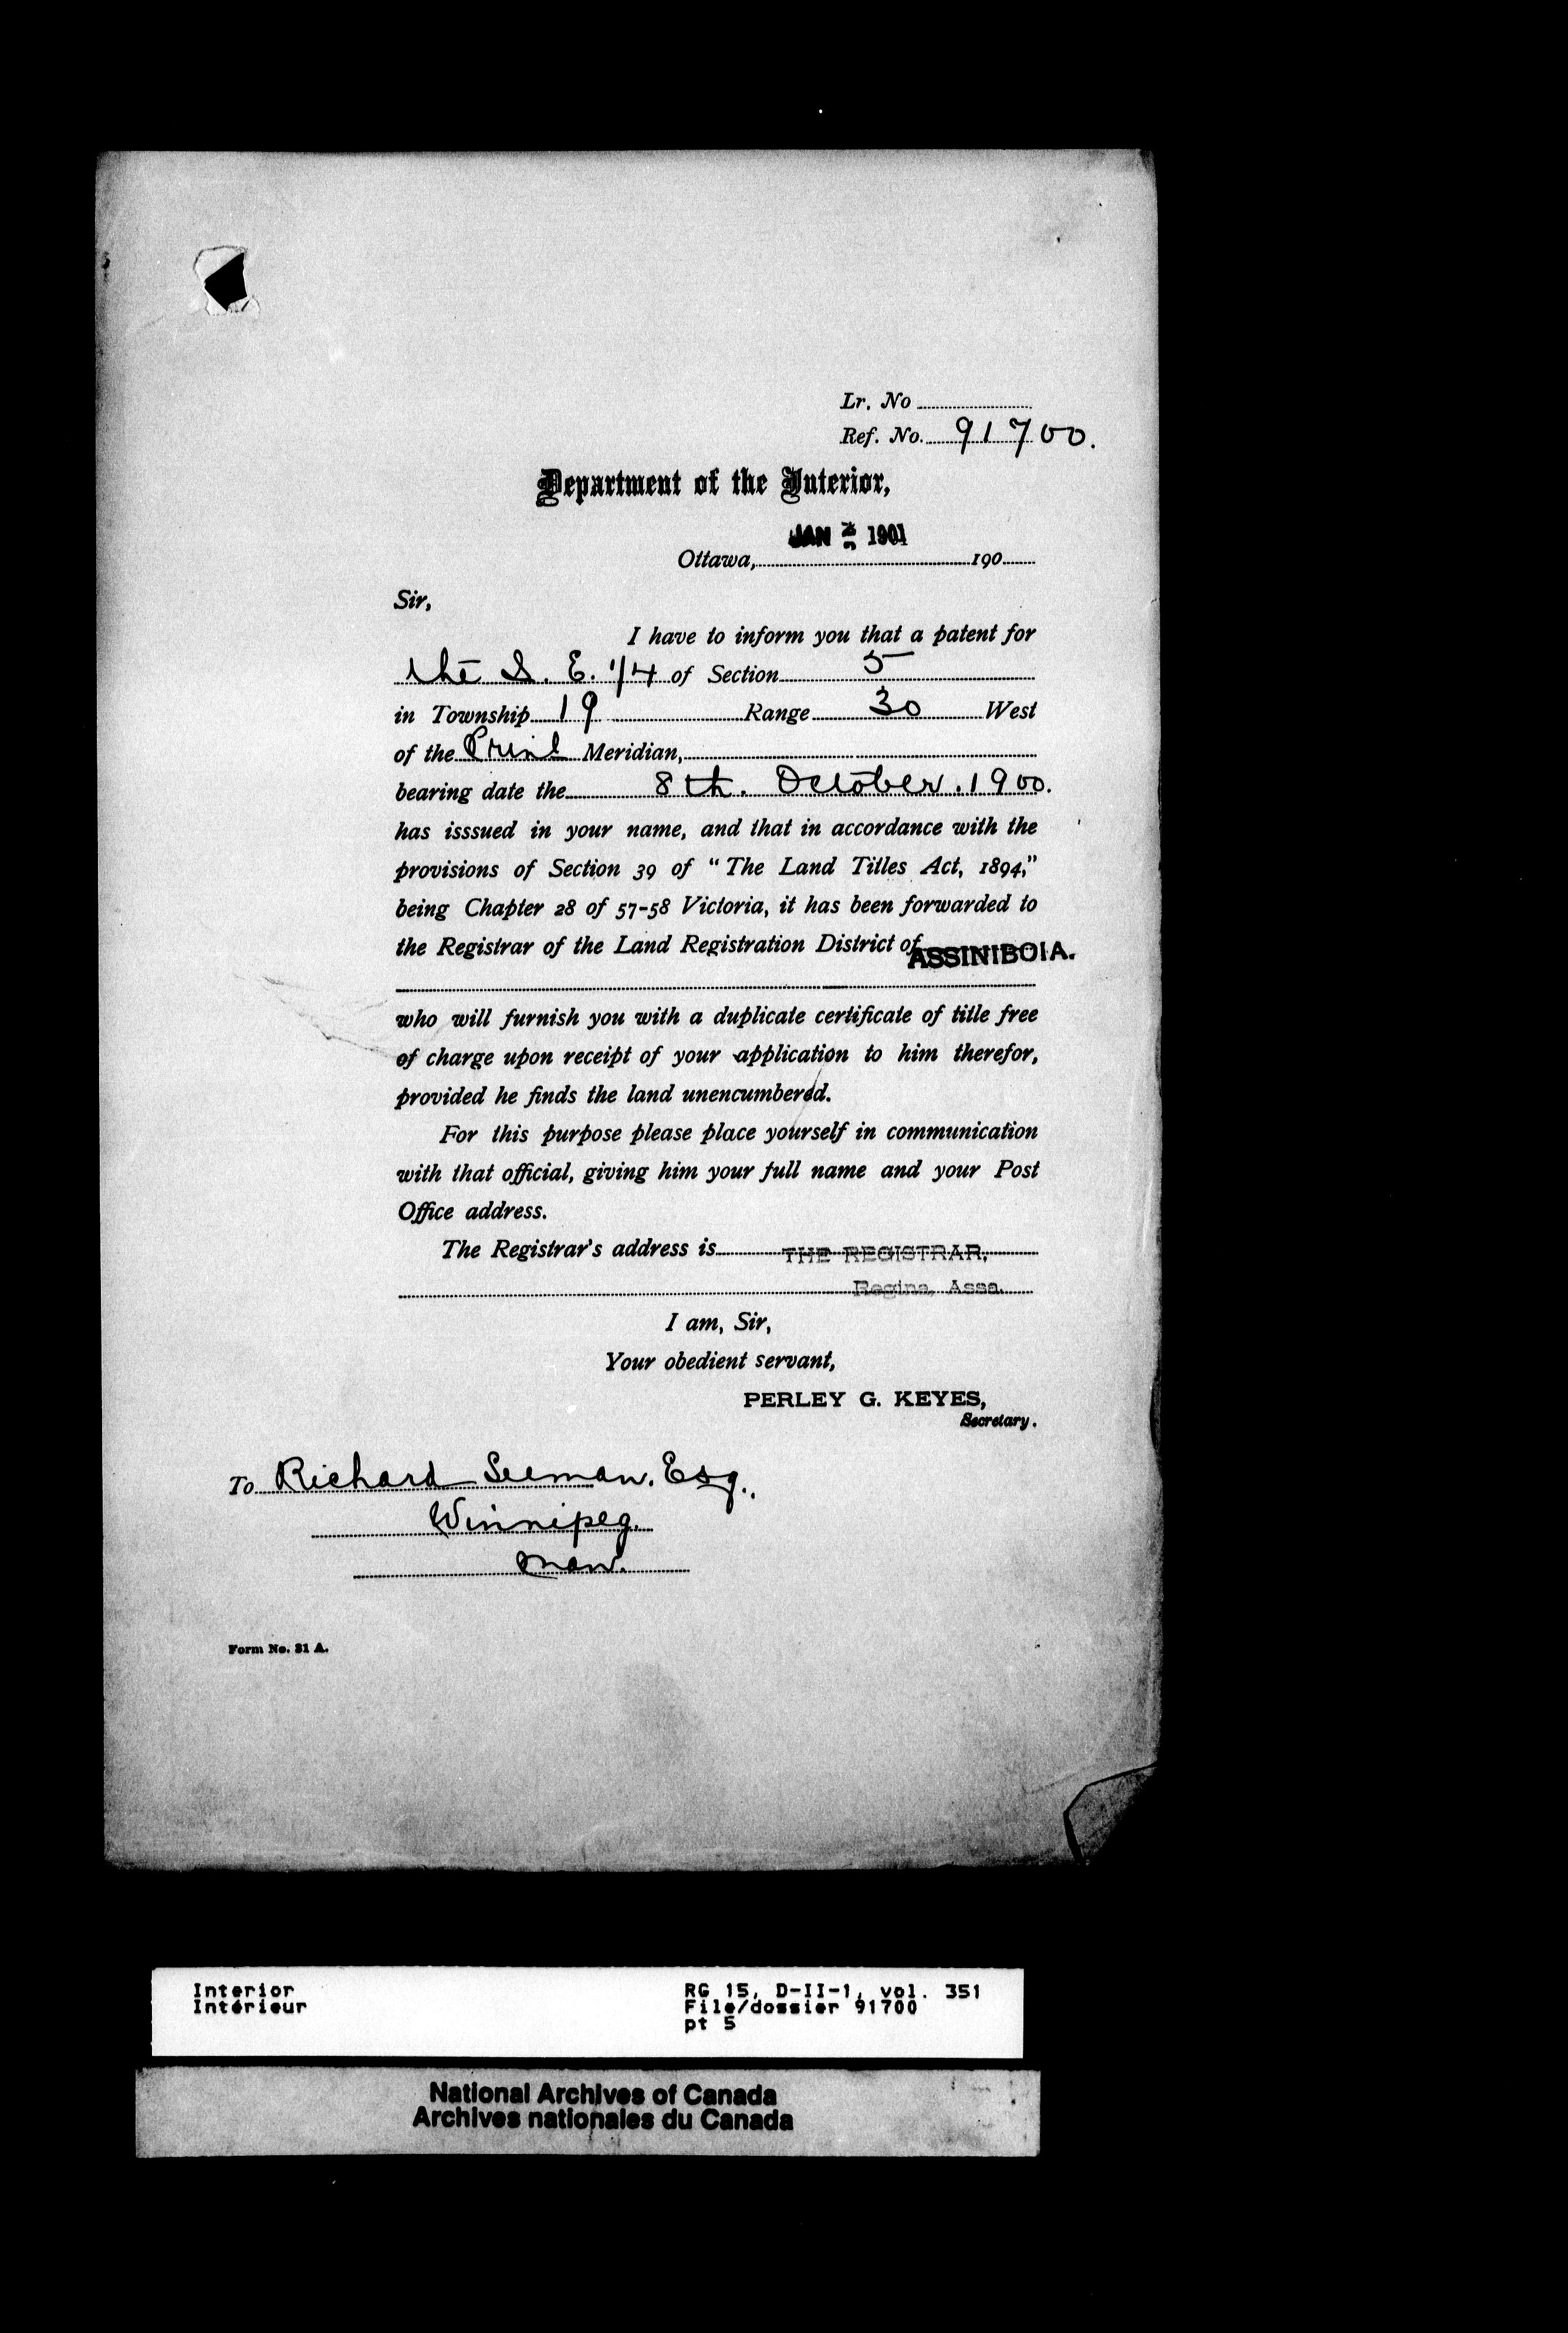 Lr. No
Ref. No. 91700.
Department of the Interior,
JAN 1901
Ottawa, 190
Sir,
I have to inform you that a patent for
the S. E. 1/4 of Section 5
in Township 19 Range 30 West
of the Prinl Meridian,
bearing date the 8th. October. 1900.
has isssued in your name, and that in accordance with the
provisions of Section 39 of "The Land Titles Act, 1894,"
being Chapter 28 of 57-58 Victoria, it has been forwarded to
the Registrar of the Land Registration District of ASSINIBOIA.
who will furnish you with a duplicate certificate of title free
of charge upon receipt of your application to him therefor,
provided he finds the land unencumbered.
For this purpose please place yourself in communication
with that official, giving him your full name and your Post
Office address.
The Registrar's address is THE REGISTRAR,
Regina, Assa.
I am, Sir,
Your obedient servant,
PERLEY G. KEYES,
Secretary.
To Richard Seeman. Esq.,
Winnipeg.
Man.
Form No. 31 A.
Interior RG 15, D-II-1, vol. 351
Intérieur File/dossier 91700
pt 5
National Archives of Canada
Archives nationales du Canada